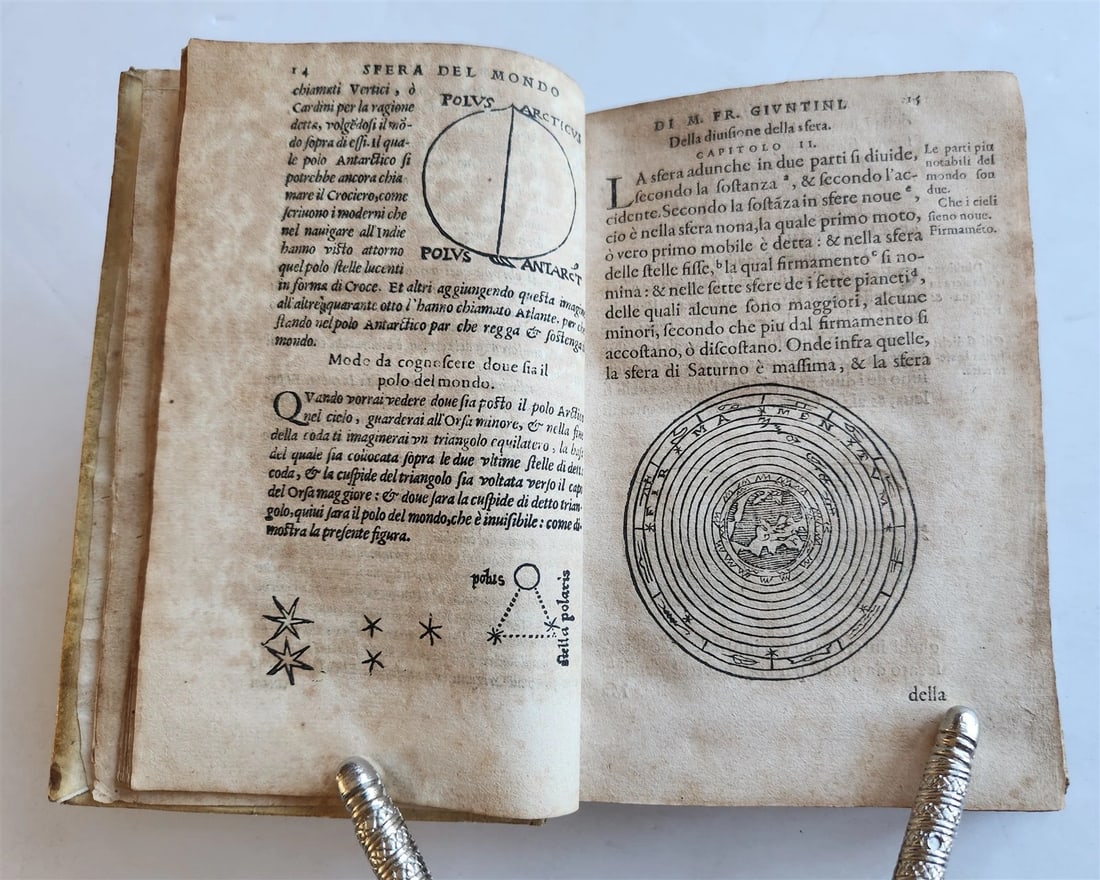 14 SFERA DEL MONDO
chiamati Vertici, ò
Cardini per la ragione
detta, volgēdosi il mō-
do sopra di essi. Il qua-
le polo Antarctico si
potrebbe ancora chia-
mare il Crociero, come
scriuono i moderni che
nel nauigare all'Indie
hanno visto attorno
quel polo stelle lucenti
in forma di Croce. Et altri aggiungendo questa imagin
all'altre quarante otto l'hanno chiamato Atlante. per che
stando nel polo Antarctico par che regga & sostenga
mondo.
POLVS ARCTICVS
POLVS ANTARCT
Modo da cognoscere doue sia il
polo del mondo.
QVando vorrai vedere doue sia posto il polo Arctico
nel cielo, guarderai all'Orsa minore, & nella fine
della coda ti imaginerai vn triangolo equilatero, la base
del quale sia collocata sopra le due vltime stelle di detta
coda, & la cuspide del triangolo sia voltata verso il capo
del Orsa maggiore: & doue sara la cuspide di detto trian-
golo, quiui sara il polo del mondo, che è inuisibile: come di-
mostra la presente figura.
polus
stella polaris
DI M. FR. GIVNTINI. 15
Della diuisione della sfera.
CAPITOLO II.
LA sfera adunche in due parti si diuide,
secondo la sostanza a, & secondo l'ac-
cidente. Secondo la sostāza in sfere noue e,
cio è nella sfera nona, la quale primo moto,
ò vero primo mobile è detta: & nella sfera
delle stelle fisse, b la qual firmamento c si no-
mina: & nelle sette sfere de i sette pianeti d,
delle quali alcune sono maggiori, alcune
minori, secondo che piu dal firmamento si
accostano, ò discostano. Onde infra quelle,
la sfera di Saturno è massima, & la sfera
Le parti piu
notabili del
mondo son
due.
Che i cieli
sieno noue.
Firmaméto.
FIRMAMENTVM
della